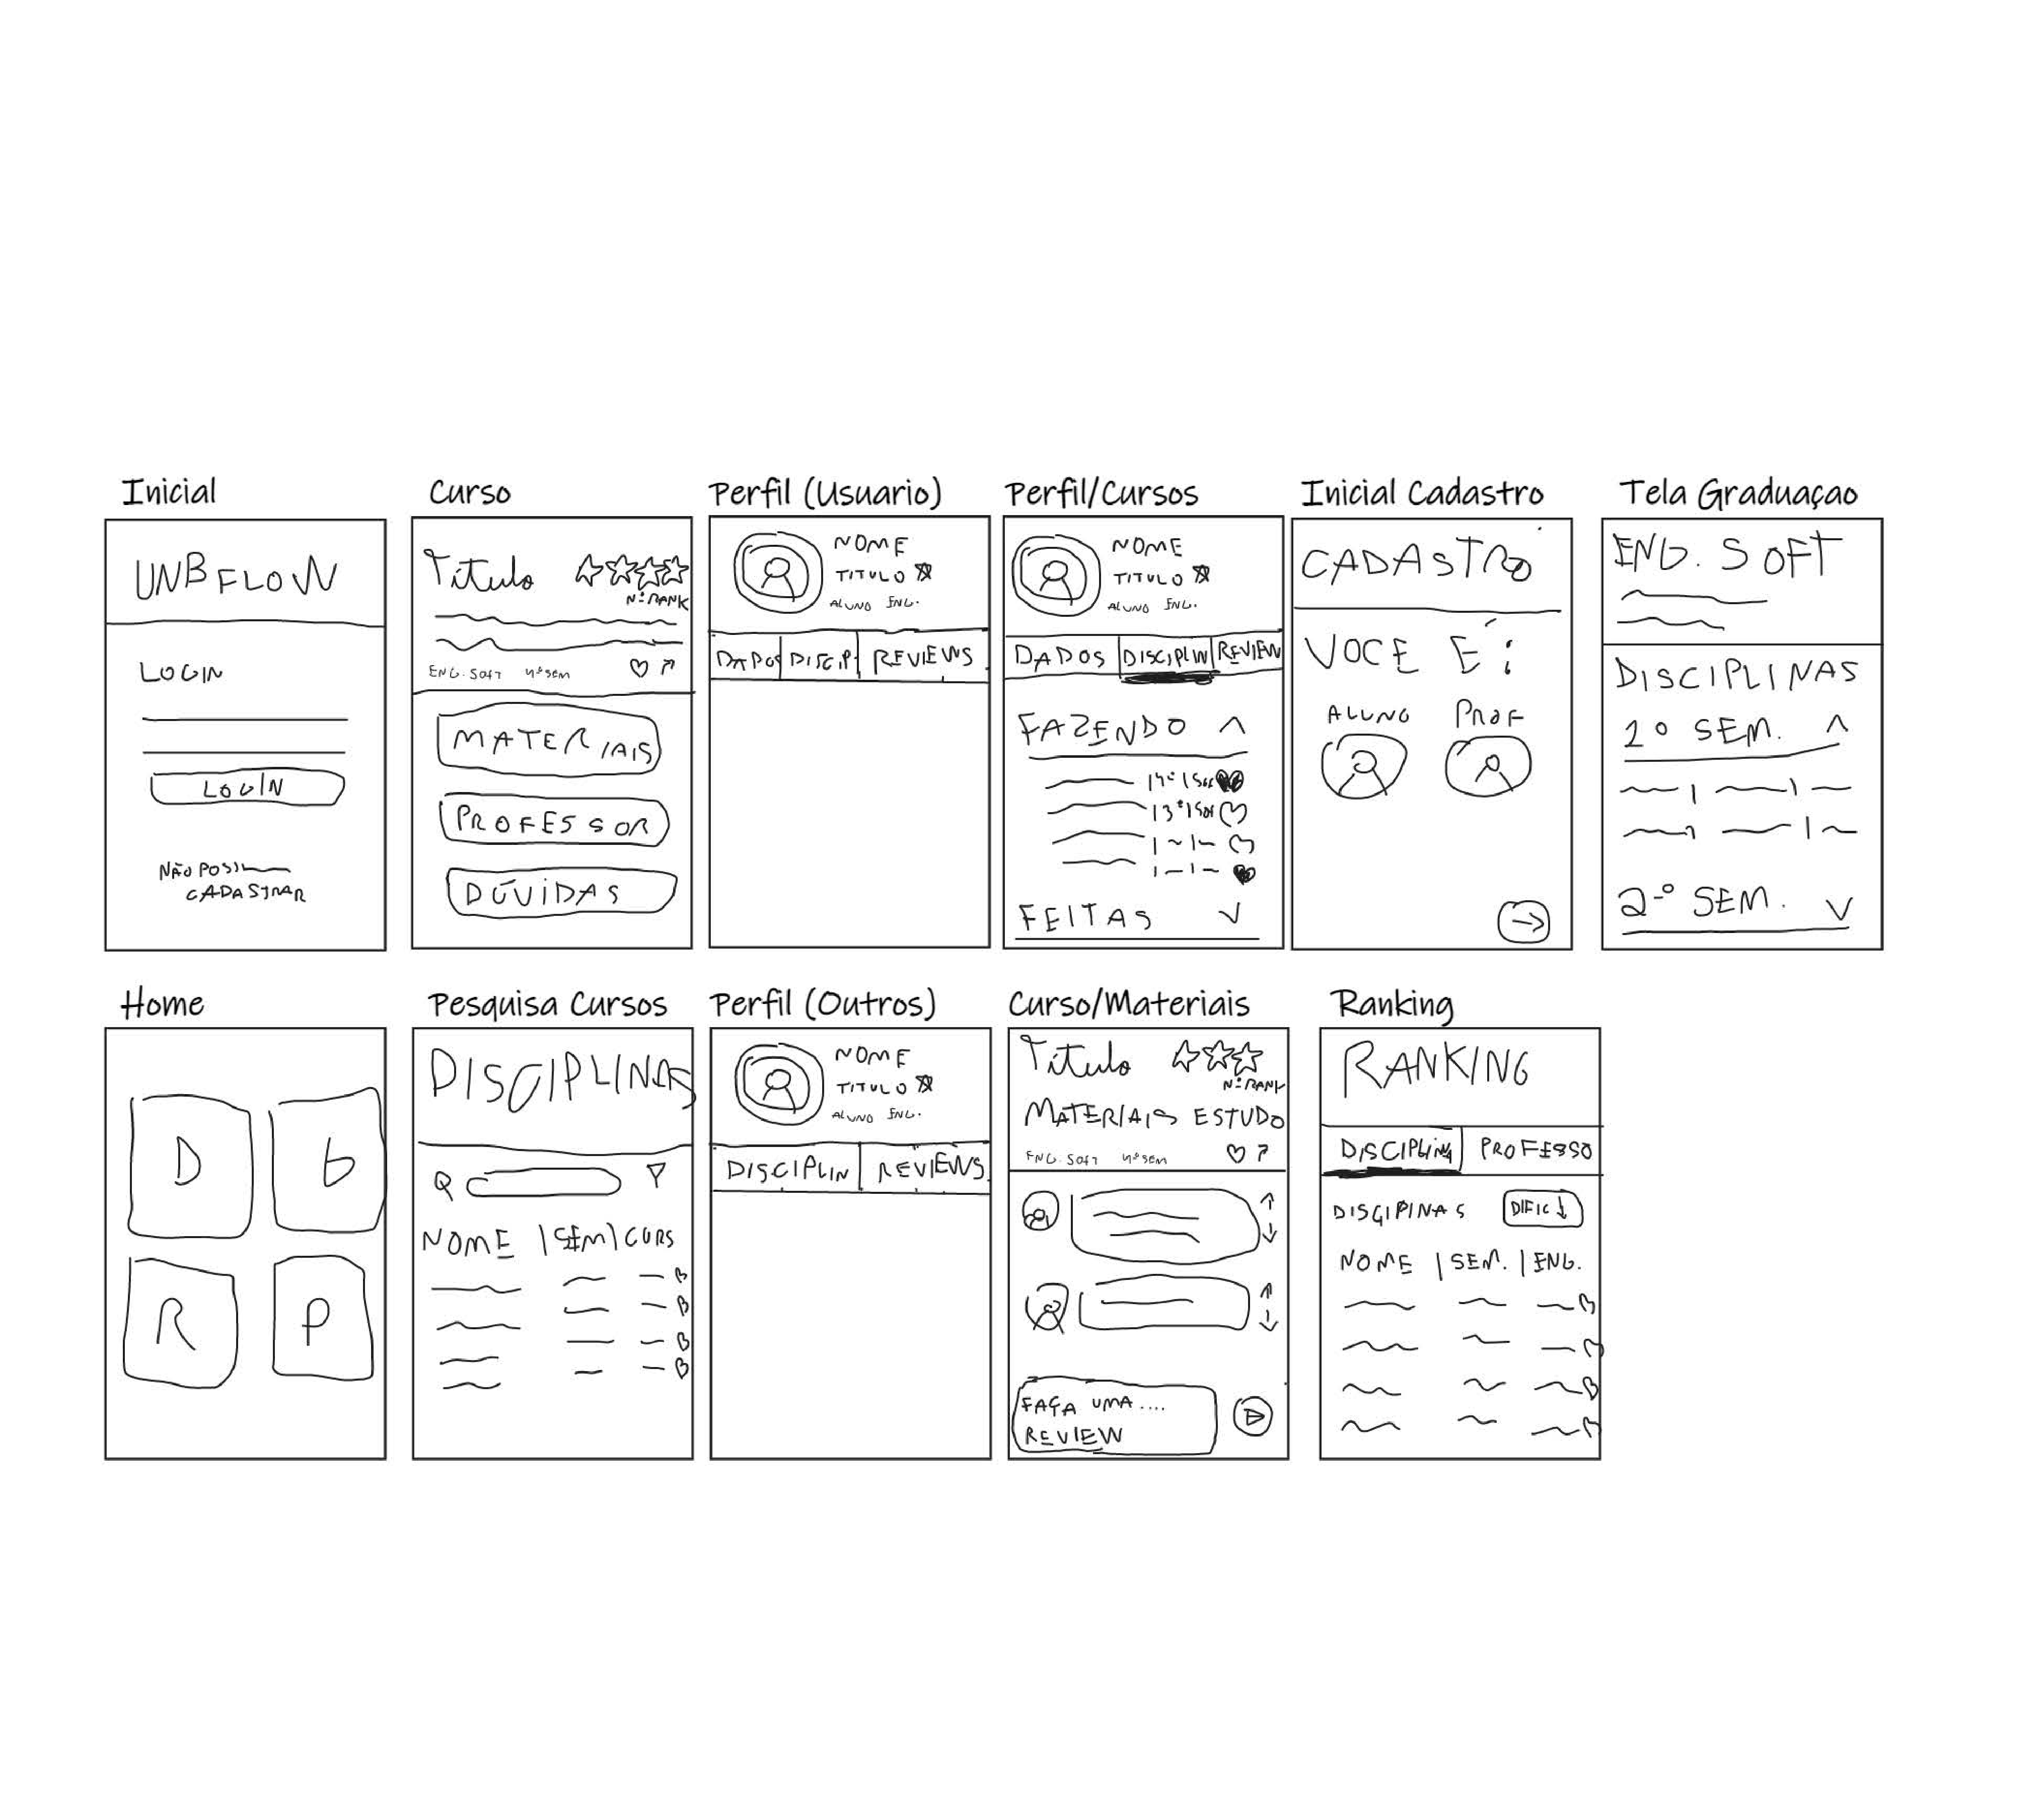 Inicial
UNB FLOW
LOGIN
LOGIN
NÃO
CADASTRAR
Curso
Título
Nº RANK
ENG. SOFT Nº SEM
MATERIAIS
PROFESSOR
DÚVIDAS
Perfil (Usuario)
NOME
TITULO
ALUNO ENG.
DADOS DISCIP. REVIEWS
Perfil/Cursos
NOME
TITULO
ALUNO ENG.
DADOS DISCIPLIN REVIEW
FAZENDO
FEITAS
Inicial Cadastro
CADASTRO
VOCE É:
ALUNO PROF
Tela Graduaçao
ENG. SOFT
DISCIPLINAS
1º SEM.
2º SEM.
Home
D G
R P
Pesquisa Cursos
DISCIPLINAS
NOME | SEM | CURS
Perfil (Outros)
NOME
TITULO
ALUNO ENG.
DISCIPLIN REVIEWS
Curso/Materiais
Título
Nº RANK
MATERIAIS ESTUDO
ENG. SOFT Nº SEM
FAÇA UMA ....
REVIEW
Ranking
RANKING
DISCIPLINA PROFESSO
DISCIPINAS DIFIC ↓
NOME | SEM. | ENG.